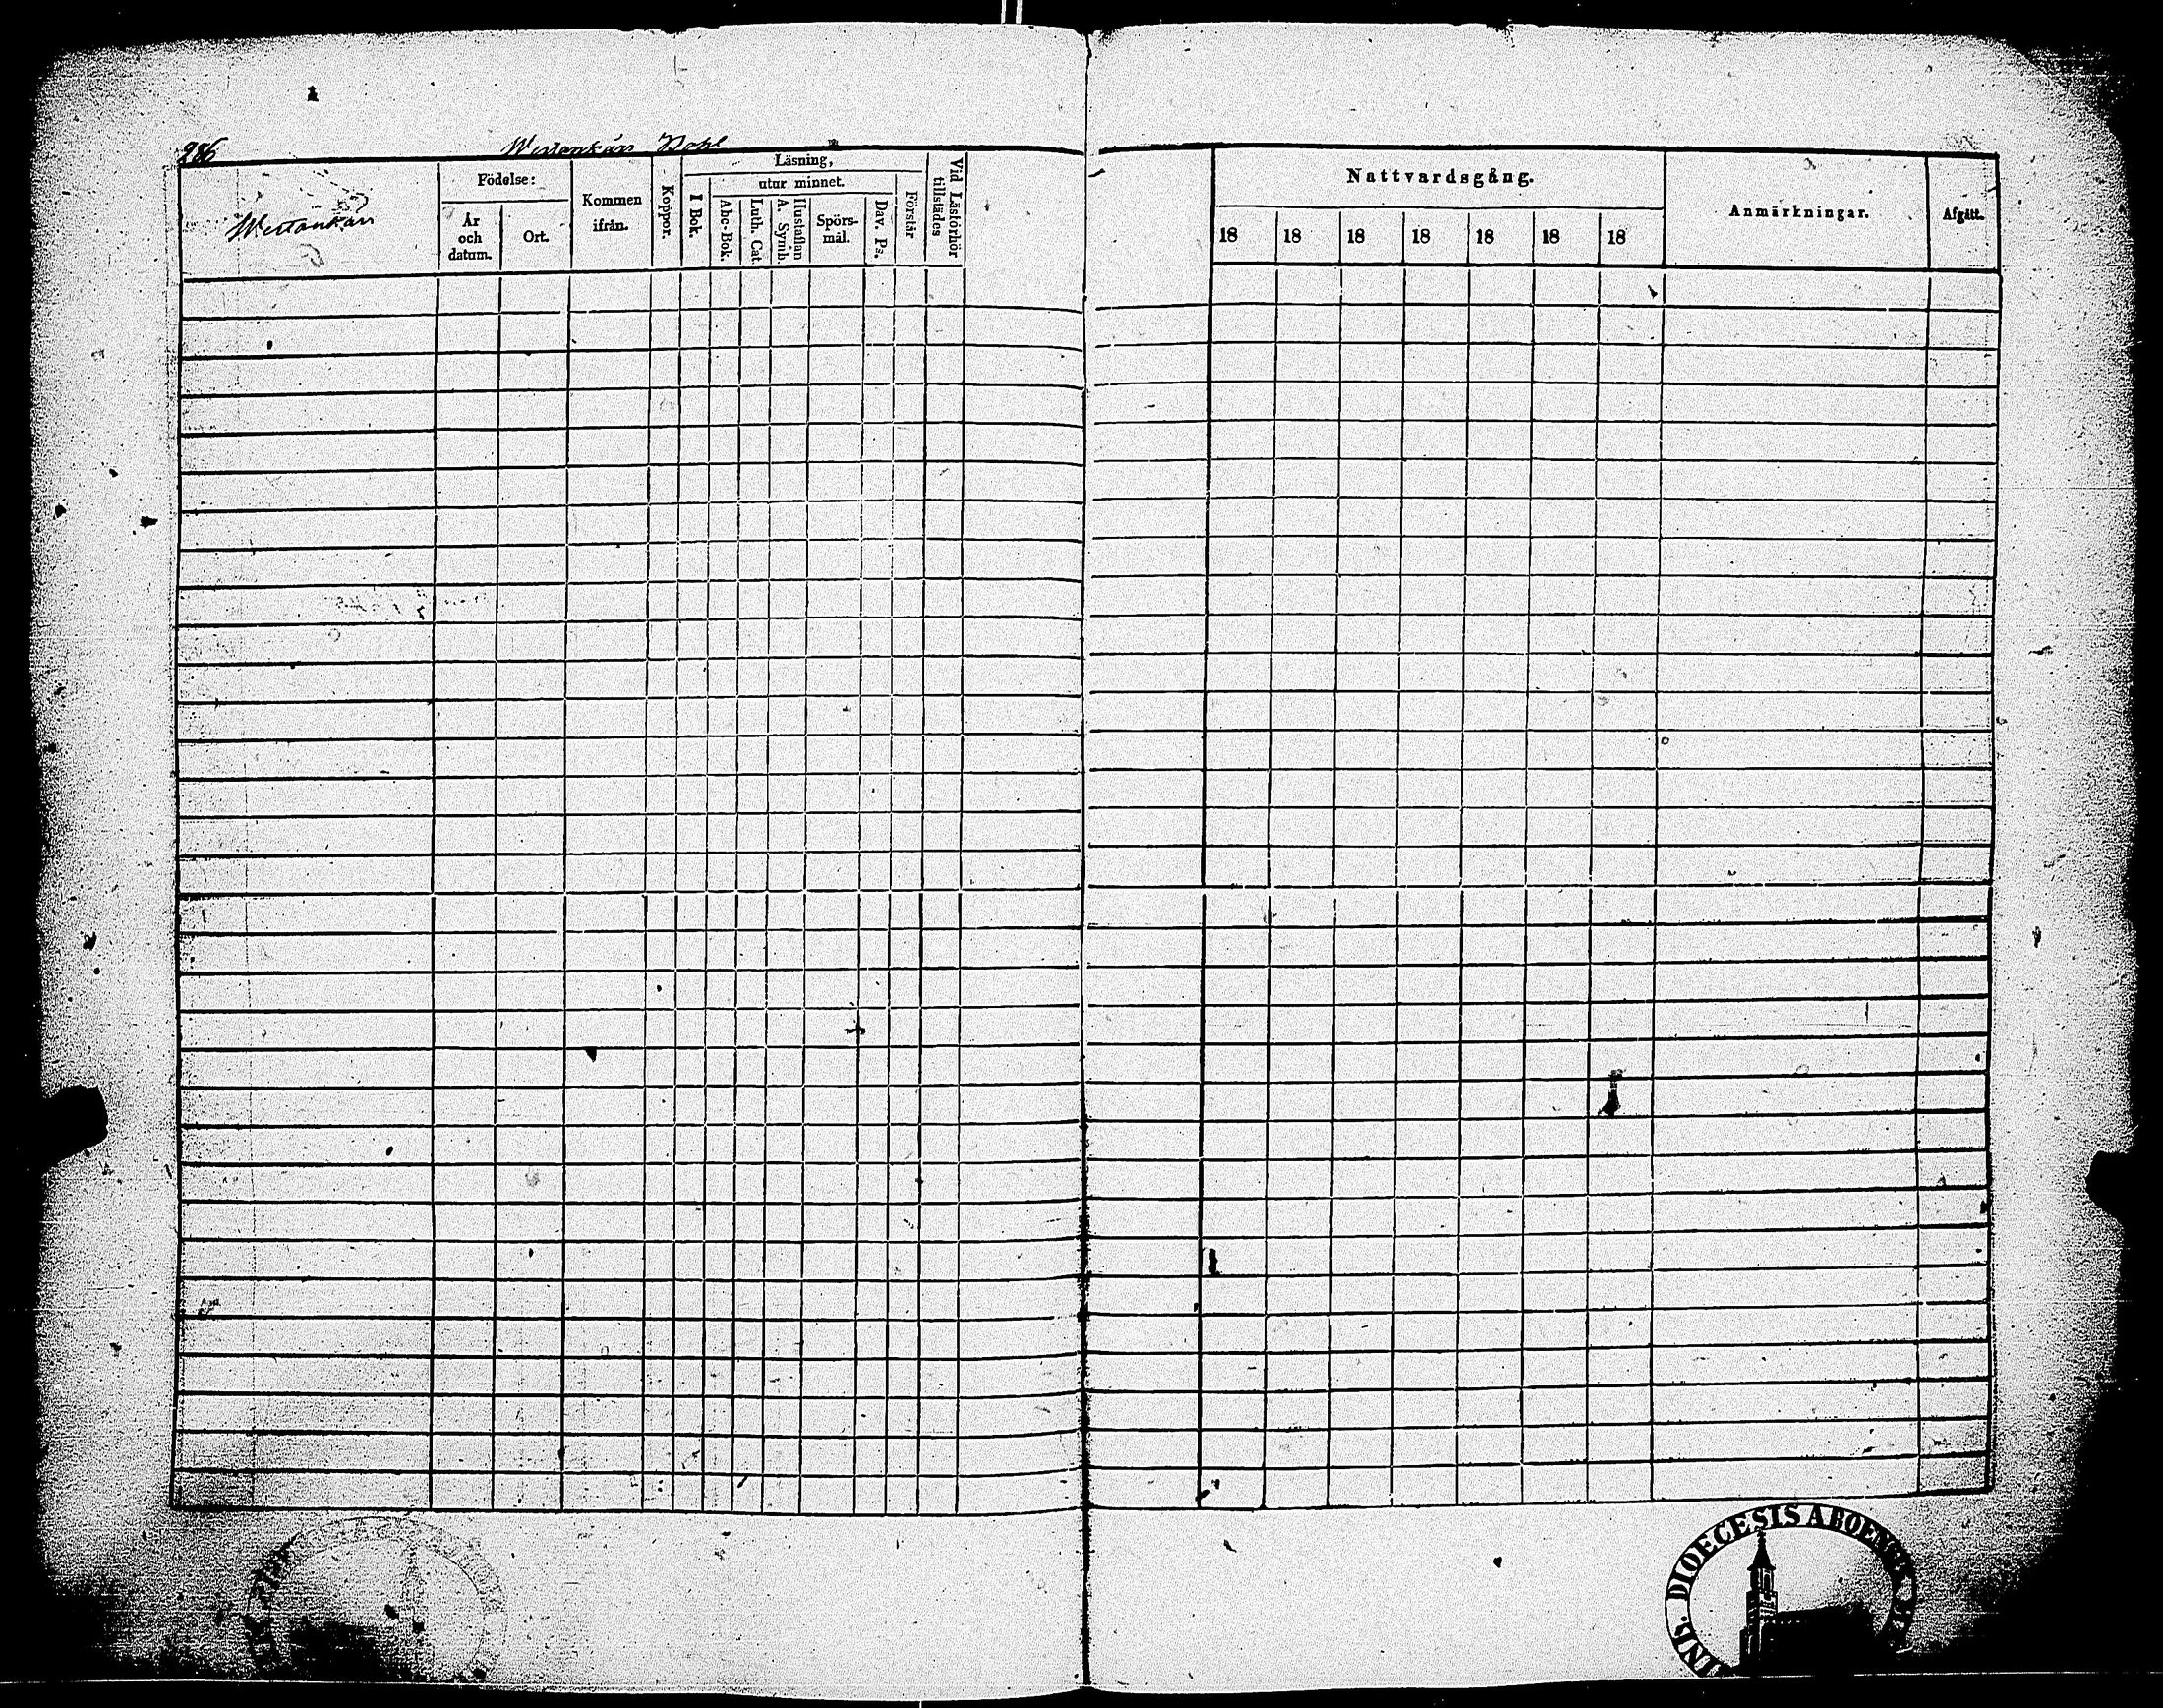 286
Westankärr
Westankärr
Födelse:
År
och
datum.
Ort.
Kommen
ifrån.
Koppor.
Läsning,
utur minnet.
I Bok.
Abc-Bok.
Luth. Cat
Hustaflan
A. Symb.
Spörs-
mål.
Dav. Ps.
Förstår
Vid Läsförhör
tillstädes
Nattvardsgång.
18 18 18 18 18 18 18
Anmärkningar.
Afgått.
DIOECESIS ABOENSIS